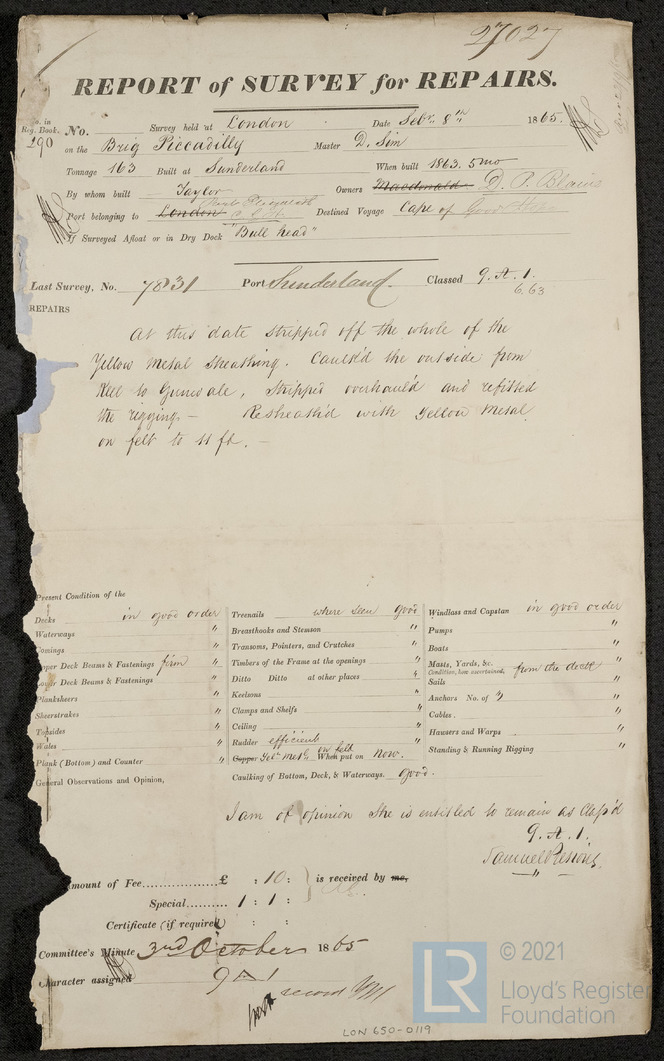 27027
REPORT of SURVEY for REPAIRS.
No. in Reg. Book. No. Survey held at London Date Sebr. 8th 1865.
290 on the Brig Piccadilly Master D. Sim
Tonnage 163 Built at Sunderland When built 1863. 5mo
By whom built Taylor Owners Macdonald D. P. Blaine
Port Elizabeth
Port belonging to London C. G. H. Destined Voyage Cape of Good Hope
If Surveyed Afloat or in Dry Dock "Bull head"
Last Survey, No. 7831 Port Sunderland. Classed 9. A. 1.
6.63
REPAIRS
At this date stripped off the whole of the
Yellow Metal Sheathing. Caulk'd the outside from
Keel to Gunwale, Stripp'd overhaul'd and refitted
the rigging — Resheath'd with Yellow Metal
on felt to 11 ft. —
Present Condition of the
Decks in good order
Waterways "
Comings "
Upper Deck Beams & Fastenings firm "
Lower Deck Beams & Fastenings "
Planksheers "
Sheerstrakes "
Topsides "
Wales "
Plank (Bottom) and Counter "
General Observations and Opinion,
Treenails where seen good
Breasthooks and Stemson "
Transoms, Pointers, and Crutches "
Timbers of the Frame at the openings "
Ditto Ditto at other places "
Keelsons "
Clamps and Shelfs "
Ceiling "
Rudder efficient "
Copper Yelr Metl on felt When put on Now.
Caulking of Bottom, Deck, & Waterways. Good.
Windlass and Capstan in good order
Pumps "
Boats "
Masts, Yards, &c. from the deck
Condition, how ascertained,
Sails "
Anchors No. of 3 "
Cables. "
Hawsers and Warps "
Standing & Running Rigging "
I am of opinion She is entitled to remain as Class'd
9. A. 1.
Samuel
Amount of Fee..................£ : 10 : is received by me,
Special.......... 1 : 1 :
Certificate (if required) : :
Committee's Minute 3rd October 1865
Character assigned 9 A 1
record YM
LON 650-0119
LR
© 2021
Lloyd's Register
Foundation